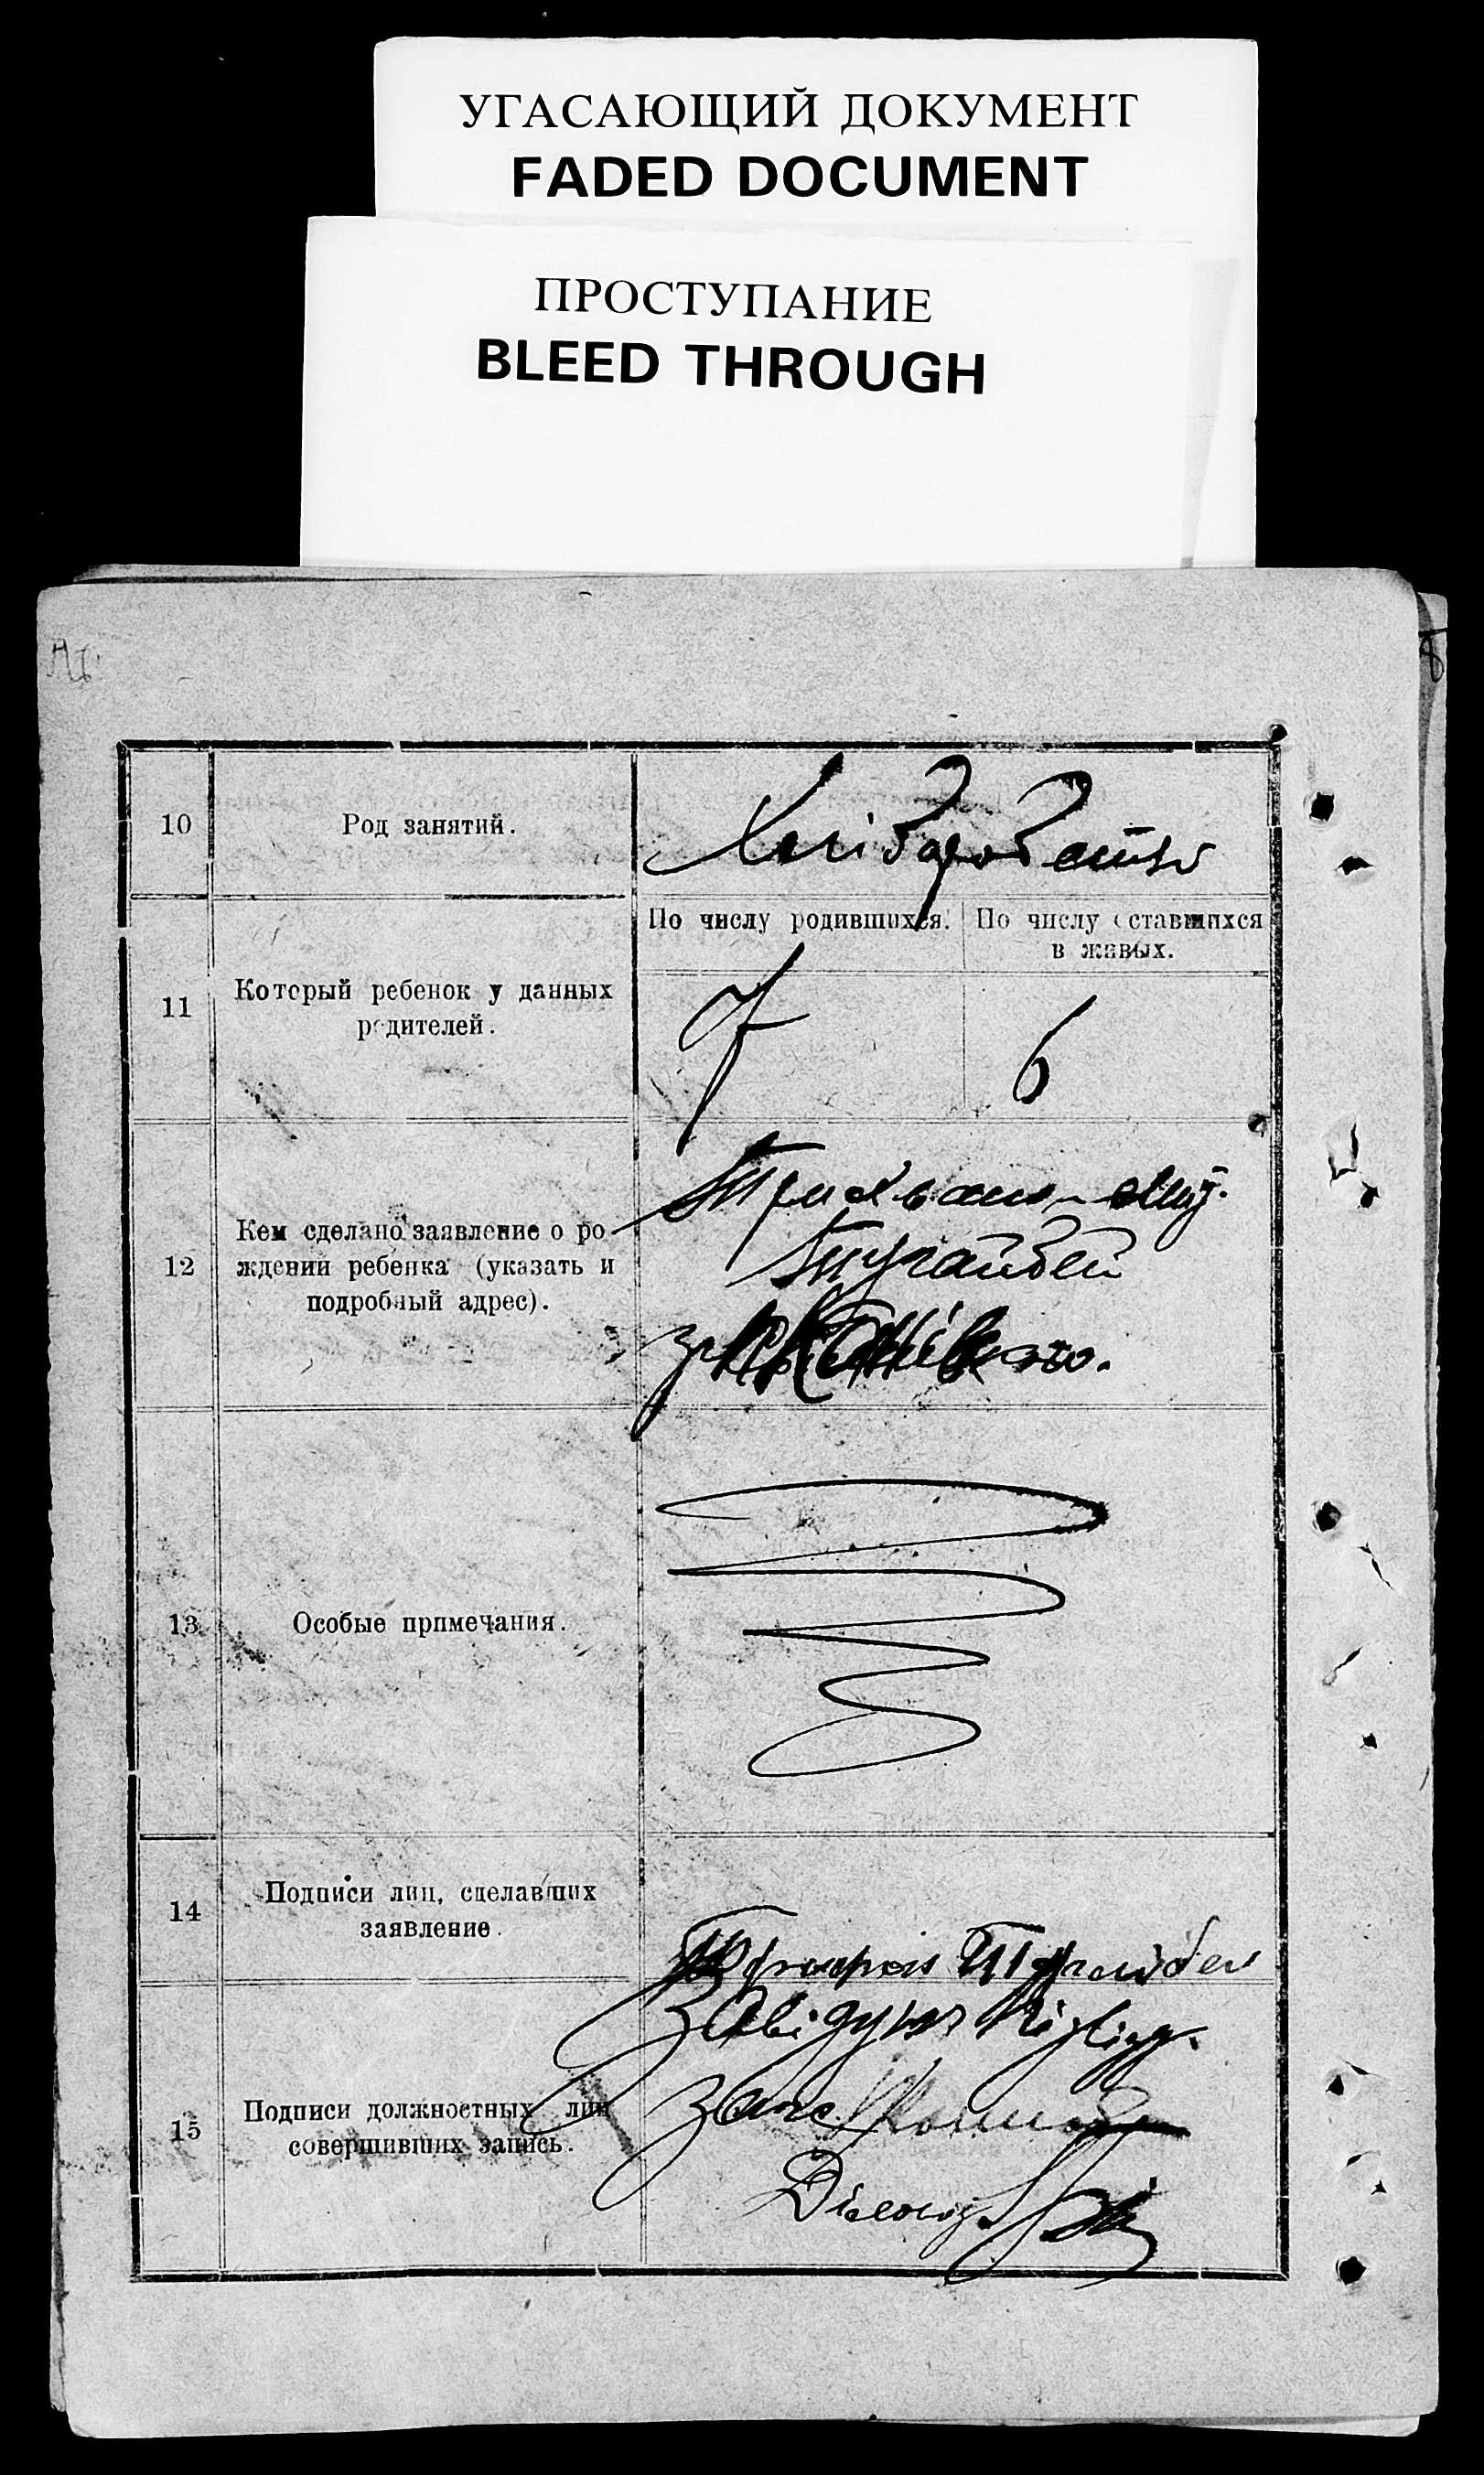 УГАСАЮЩИЙ ДОКУМЕНТ
FADED DOCUMENT
ПРОСТУПАНИЕ
BLEED THROUGH
10
Род занятий.
Хліборобство
По числу родившихся.
По числу оставшихся
в живых.
11
Который ребенок у данных
родителей.
7
6
12
Кем сделано заявление о ро
ждении ребенка (указать и
подробный адрес).
Тугайбей
13
Особые примечания.
14
Подписи лиц, сделавших
заявление.
Тугайбей
15
Подписи должностных лиц
совершивших запись.
Завідуюч
Діловод